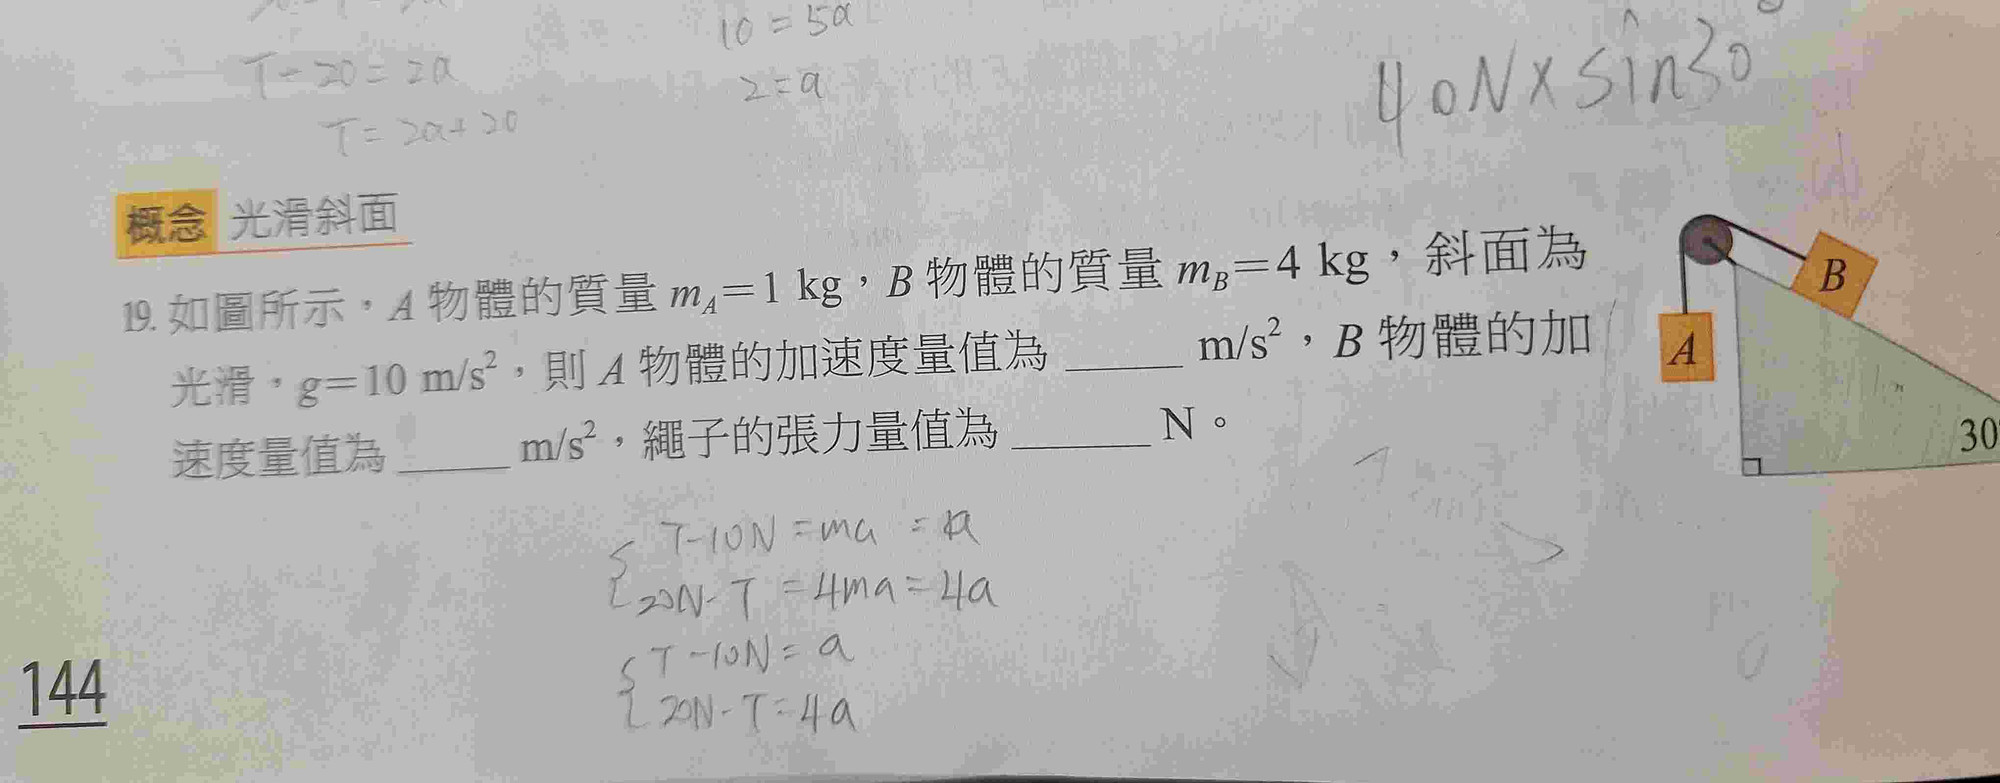 10 = 5a
T - 20 = 2a
2 = a
T = 2a + 20
40N × sin30°
概念 光滑斜面
19. 如圖所示，A 物體的質量 mA＝1 kg，B 物體的質量 mB＝4 kg，斜面為
光滑，g＝10 m/s²，則 A 物體的加速度量值為 _____ m/s²，B 物體的加
速度量值為 _____ m/s²，繩子的張力量值為 ______ N。
B
A
30°
T - 10N = ma = a
20N - T = 4ma = 4a
T - 10N = a
20N - T = 4a
144